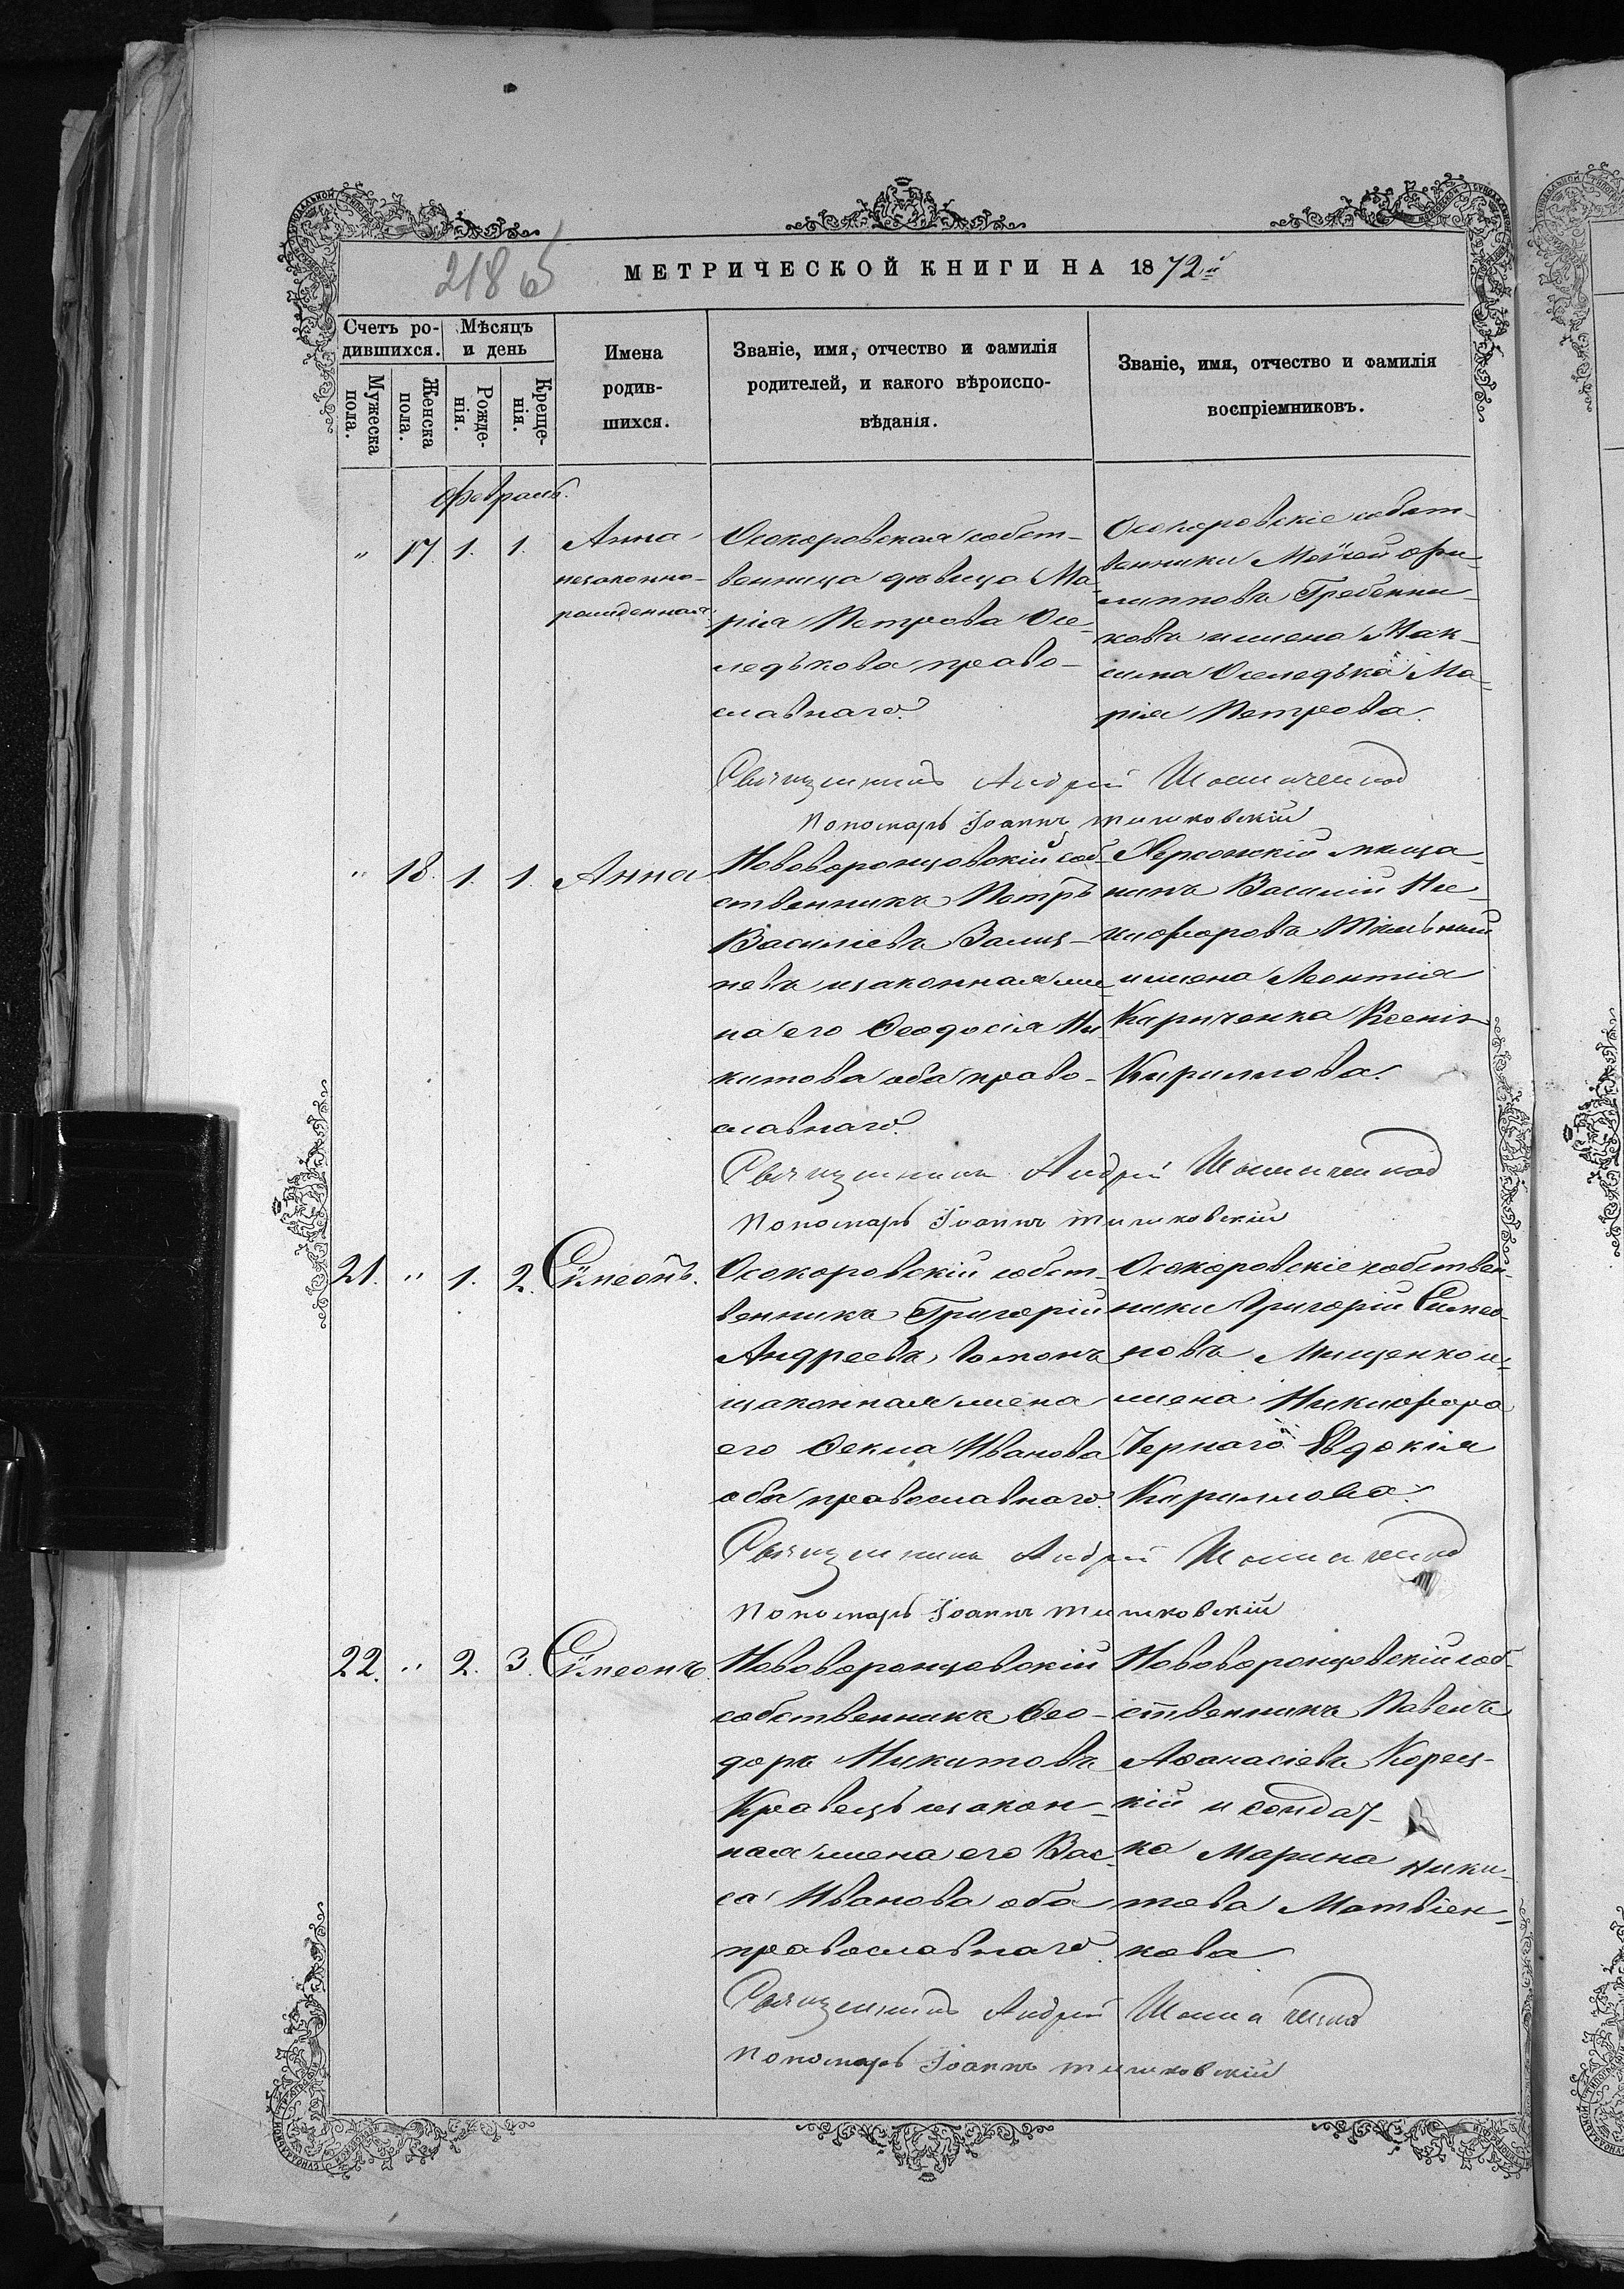 218 об
МЕТРИЧЕСКОЙ КНИГИ НА 1872й
Счетъ ро-
дившихся.
Мѣсяцъ
и день
Мужеска
пола.
Женска
пола.
Рожде-
нія.
Креще-
нія.
Имена
родив-
шихся.
Званіе, имя, отчество и фамилія
родителей, и какого вѣроиспо-
вѣданія.
Званіе, имя, отчество и фамилія
воспріемниковъ.
Февраль.
" 17. 1. 1.
Анна
незаконно-
рожденная
Осокоровская собст-
венница дѣвица Ма-
рія Петрова Осе-
ледькова право-
славнаго.
Осокоровскіе собст-
венники Моѵсей Фи-
липповъ Гребенни-
ковъ и жена Мак-
сима Оселедька Ма-
рія Петрова.
Священникъ Андрей
Пономарь Іоаннъ
" 18. 1. 1. Анна
Нововоронцовскій соб-
ственникъ Петръ
Василіевъ
и законная же-
на его Ѳеодосія Ни-
китова оба право-
славнаго.
Херсонскій мѣща-
нинъ Василій Ни-
кифоровъ
и жена Леонтія
Кириченка Ксенія
Кириллова.
Священникъ Андрей
Пономарь Іоаннъ
21. " 1. 2. Сѵмеонъ.
Осокоровскій собст-
венникъ Григорій
Андреевъ
и законная жена
его Ѳекла Иванова
оба православнаго.
Осокоровскіе собствен-
ники Григорій Симео-
новъ Мищенко и
жена Никифора
Чернаго Евдокія
Кириллова.
Священникъ Андрей
Пономарь Іоаннъ
22. " 2. 3. Сѵмеонъ.
Нововоронцовскій
собственникъ Ѳео-
доръ Никитовъ
Кравецъ и закон-
ная жена его Вас-
са Иванова оба
православнаго.
Нововоронцовскій соб-
ственникъ Павелъ
Аѳанасіевъ Корец-
кій и солдат-
ка Марина Ники-
това Матвіен-
кова
Священникъ Андрей
Пономарь Іоаннъ